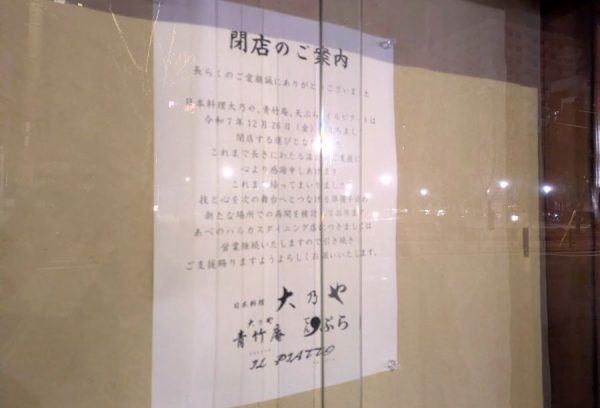 閉店のご案内
長らくのご愛顧誠にありがとうございました
日本料理大乃や、青竹庵、天ぷら、イルピアットは
令和7年12月26日(金)をもちまし
閉店する運びとな
これまで長きにわたる温かいご支援に
心より感謝申しあげます
これまで培ってまいりました
技と心を次の舞台へとつなげる準備を進め
新たな場所での再開を検討しております
あべのハルカスダイニング店につきましては
営業継続いたしますので引き続き
ご支援賜りますようよろしくお願いいたします。
日本料理 大乃や
大乃や
青竹庵 てんぷら
IL